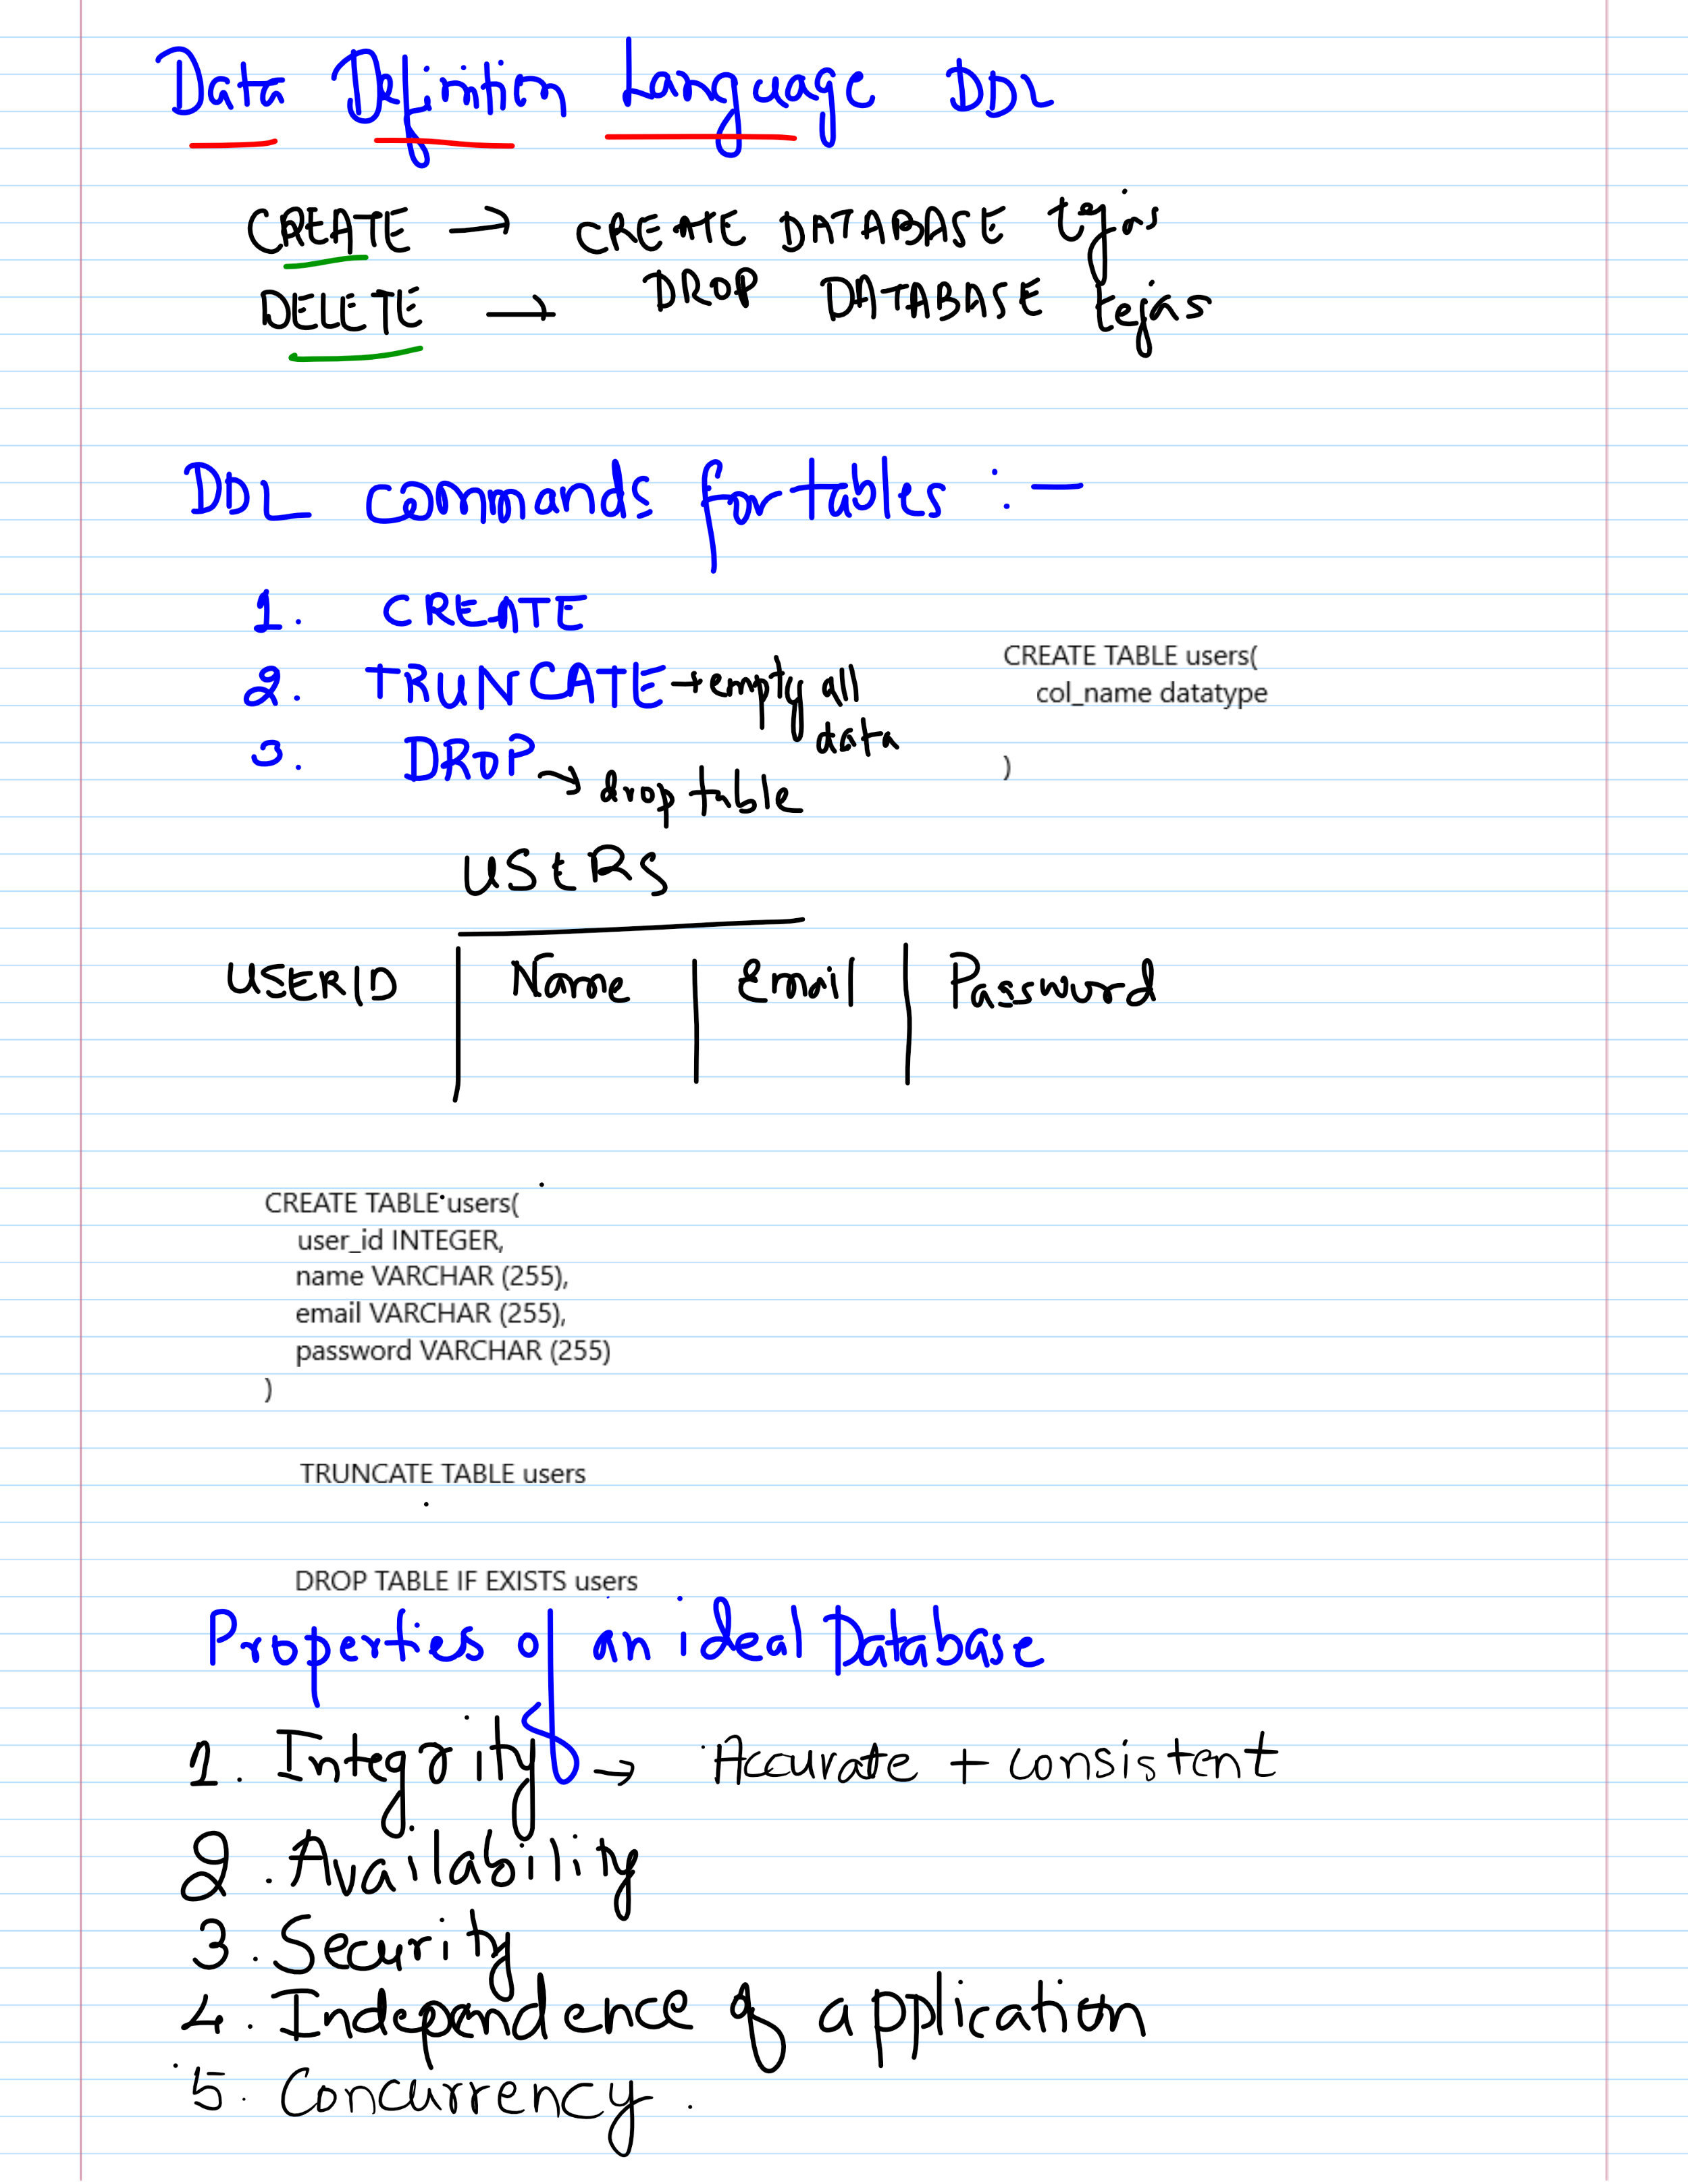 Data Definition Language DDL
CREATE → CREATE DATABASE tejas
DELETE → DROP DATABASE tejas
DDL commands for tables :-
1. CREATE
2. TRUNCATE → empty all
data
3. DROP → drop table
CREATE TABLE users(
col_name datatype
)
USERS
USERID Name Email Password
CREATE TABLE users(
user_id INTEGER,
name VARCHAR (255),
email VARCHAR (255),
password VARCHAR (255)
)
TRUNCATE TABLE users
DROP TABLE IF EXISTS users
Properties of an ideal Database
1. Integrity → Accurate + consistent
2. Availability
3. Security
4. Independence of application
5. Concurrency.